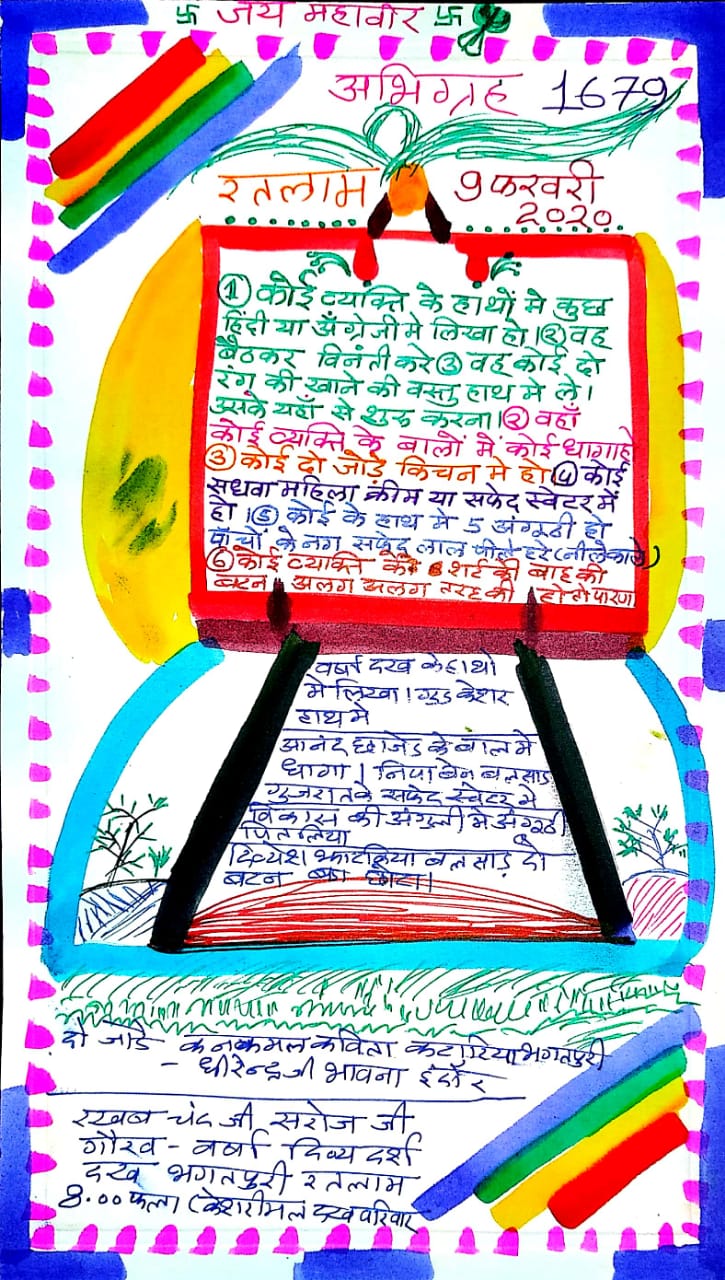 卐 जय महावीर 卐
अभिग्रह 1679
रतलाम 9 फरवरी
2020
① कोई व्यक्ति के हाथों मे कुछ
हिंदी या अँग्रेजी मे लिखा हो।② वह
बैठकर विनंती करे ③ वह कोई दो
रंग की खाने की वस्तु हाथ मे ले।
उसके यहाँ से शुरू करना।② वहाँ
कोई व्यक्ति के बालों में कोई धागा हो
③ कोई दो जोड़े किचन मे हो ④ कोई
सधवा महिला क्रीम या सफेद स्वेटर में
हो।⑤ कोई के हाथ मे 5 अंगूठी हो
पाँचों के नग सफेद लाल पीले हरे (नीले काले)
⑥ कोई व्यक्ति के शर्ट की बाह की
बटन अलग अलग तरह की हो तो पारणा
वर्षा दख के हाथो
मे लिखा। गुड केशर
हाथ मे
आनंद छाजेड के बाल मे
धागा। निपा बेन बलसाड
गुजरात के सफेद स्वेटर मे
विकास की अंगुली मे अंगूठी
पितलिया
दिव्येश बलसाड़ दो
बटन का
दो जोडे कनकमल कविता कटारिया भगतपुरी
- धीरेन्द्रजी भावना इंदौर
रखब चंद जी सरोज जी
गौरव - वर्षा दिव्य दर्श
दख भगतपुरी रतलाम
8.00 फला (केशरीमल दख परिवार